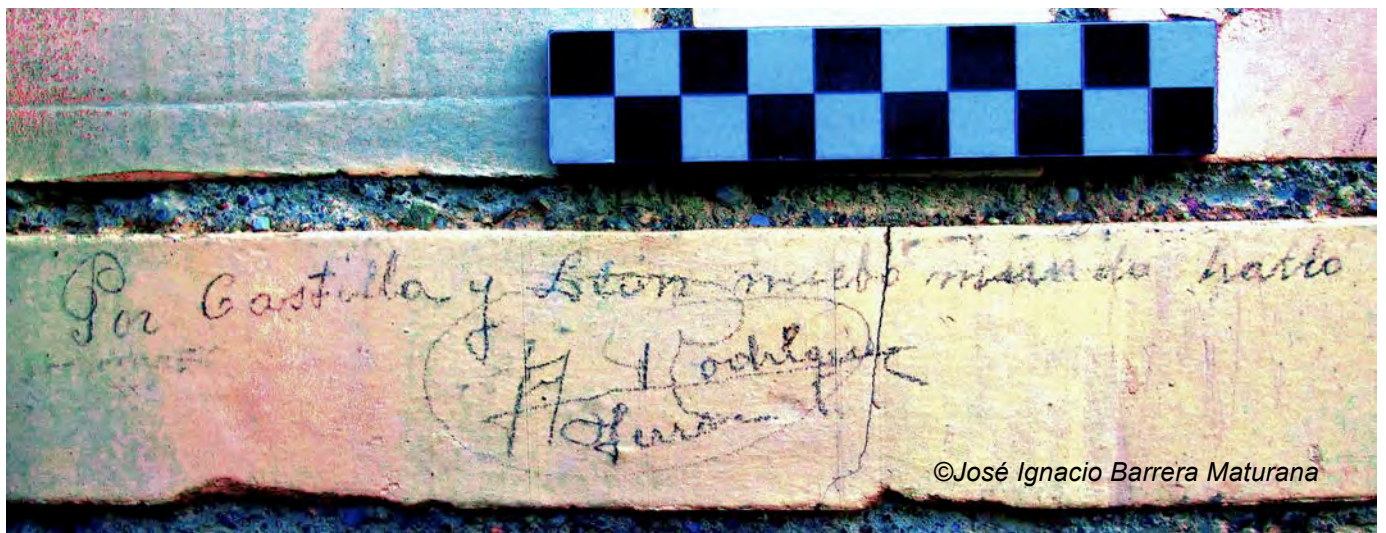 Por Castilla y León nuebo mundo hallo
A Rodríguez
©José Ignacio Barrera Maturana